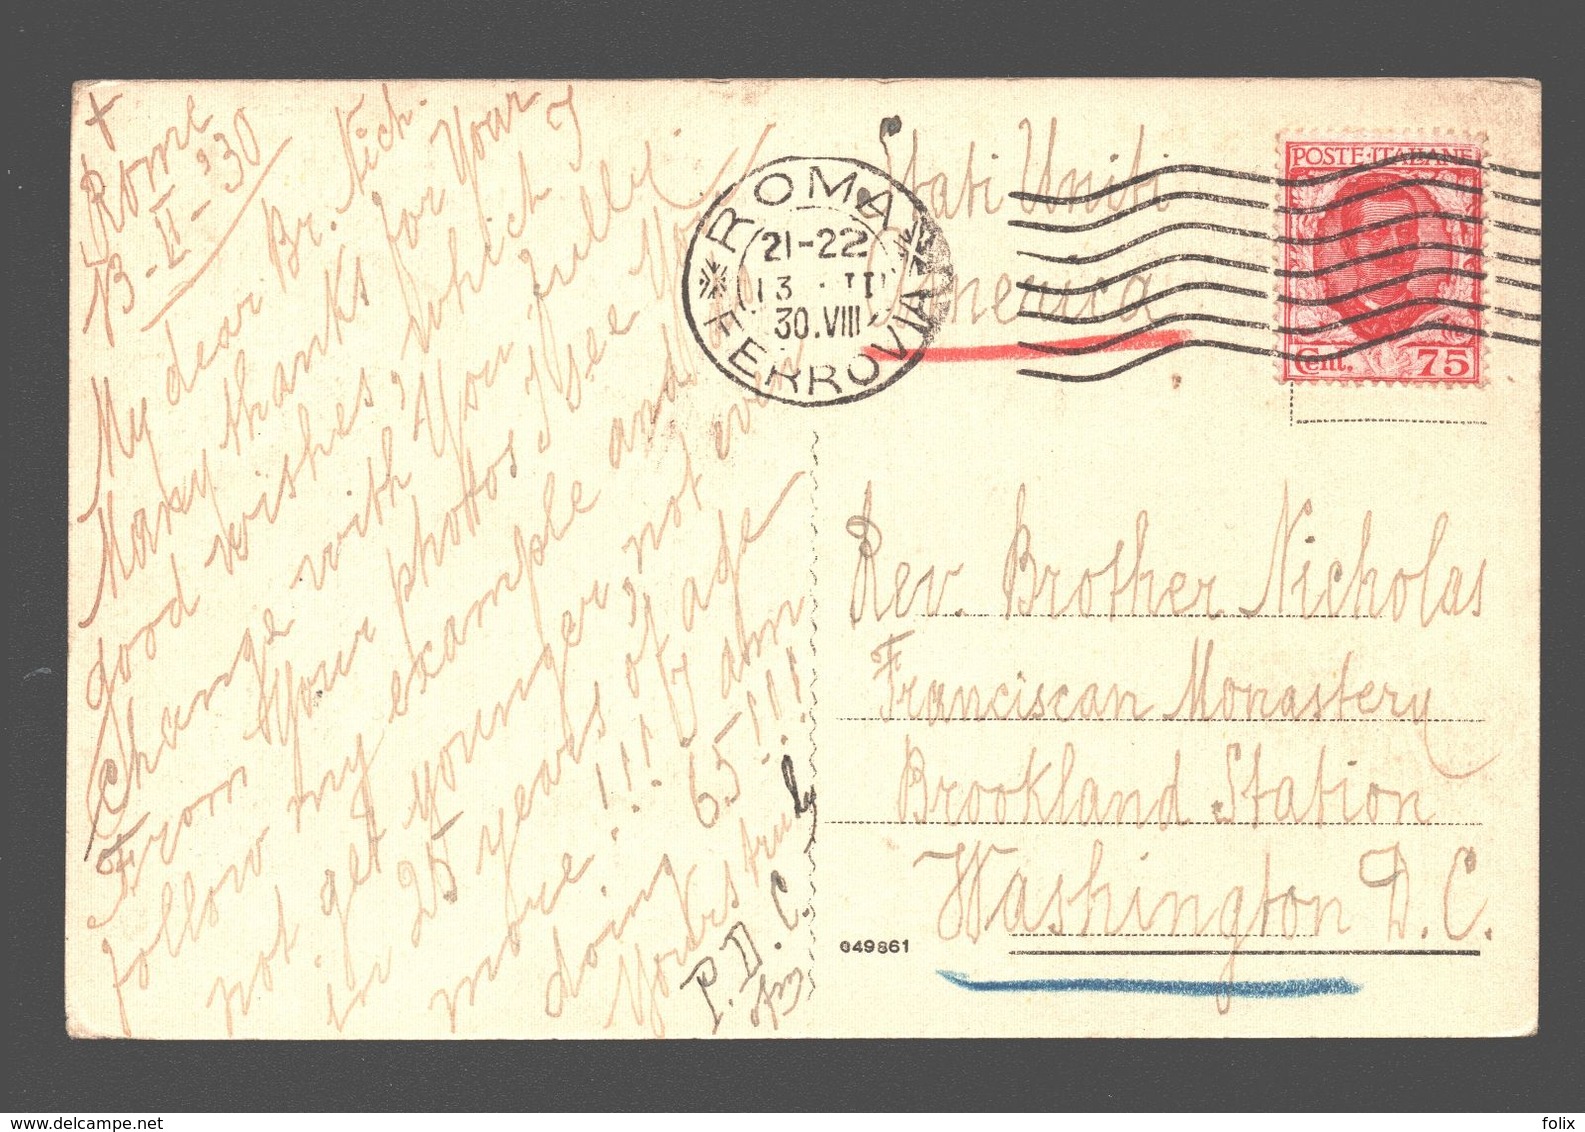 +
Rome
13-II-'30
My dear Br. Nich.
Many thanks for Your
good wishes, which I
change with Your fully.
From Your photos I see You
follow my example and do
not get younger, not even
in 25 years of age
more!!!! I am
doing 65!!!!
Yours truly
P. D. C.
Stati Uniti
America
ROMA
21-22
13 · II
30.VIII
FERROVIA
POSTE·ITALIANE
Cent. 75
Rev. Brother Nicholas
Franciscan Monastery
Brookland Station
Washington D. C.
049861
felix
www.delcampe.net